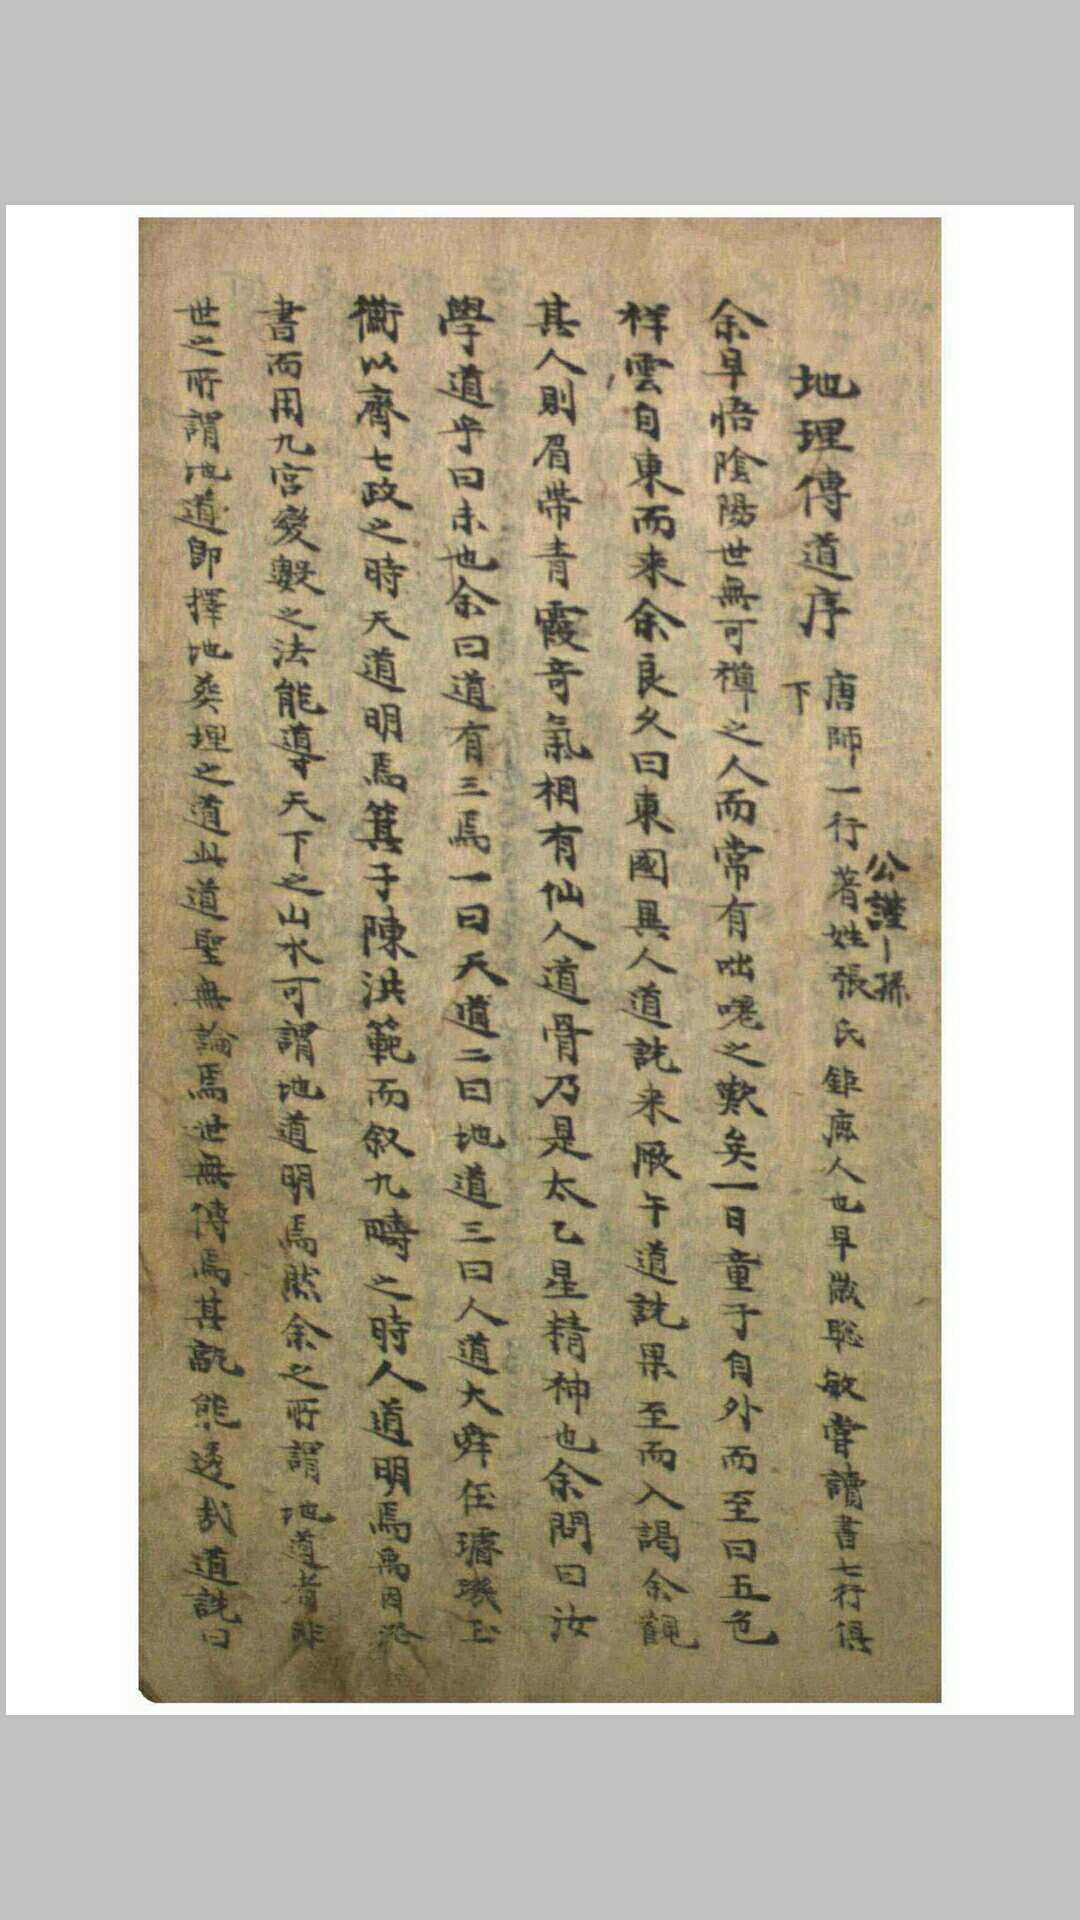 地理傳道序
唐師一行著姓張氏鉅鹿人也早歲聡敏嘗讀書七行俱
下
公謹之孫
余早悟陰陽世無可禪之人而常有咄嗟之歎矣一日童子自外而至曰五色
祥雲自東而来余良久曰東國異人道詵来厥午道詵果至而入謁余觀
其人則眉帶青霞奇氣相有仙人道骨乃是太乙星精神也余問曰汝
學道乎曰未也余曰道有三焉一曰天道二曰地道三曰人道大舜在璿璣玉
衡以齊七政之時天道明焉箕子陳洪範而叙九疇之時人道明焉禹因洛
書而用九宮變數之法能導天下之山水可謂地道明焉然余之所謂地道者非
世之所謂地道即擇地葬埋之道此道聖無論焉世無傳焉其孰能透哉道詵曰